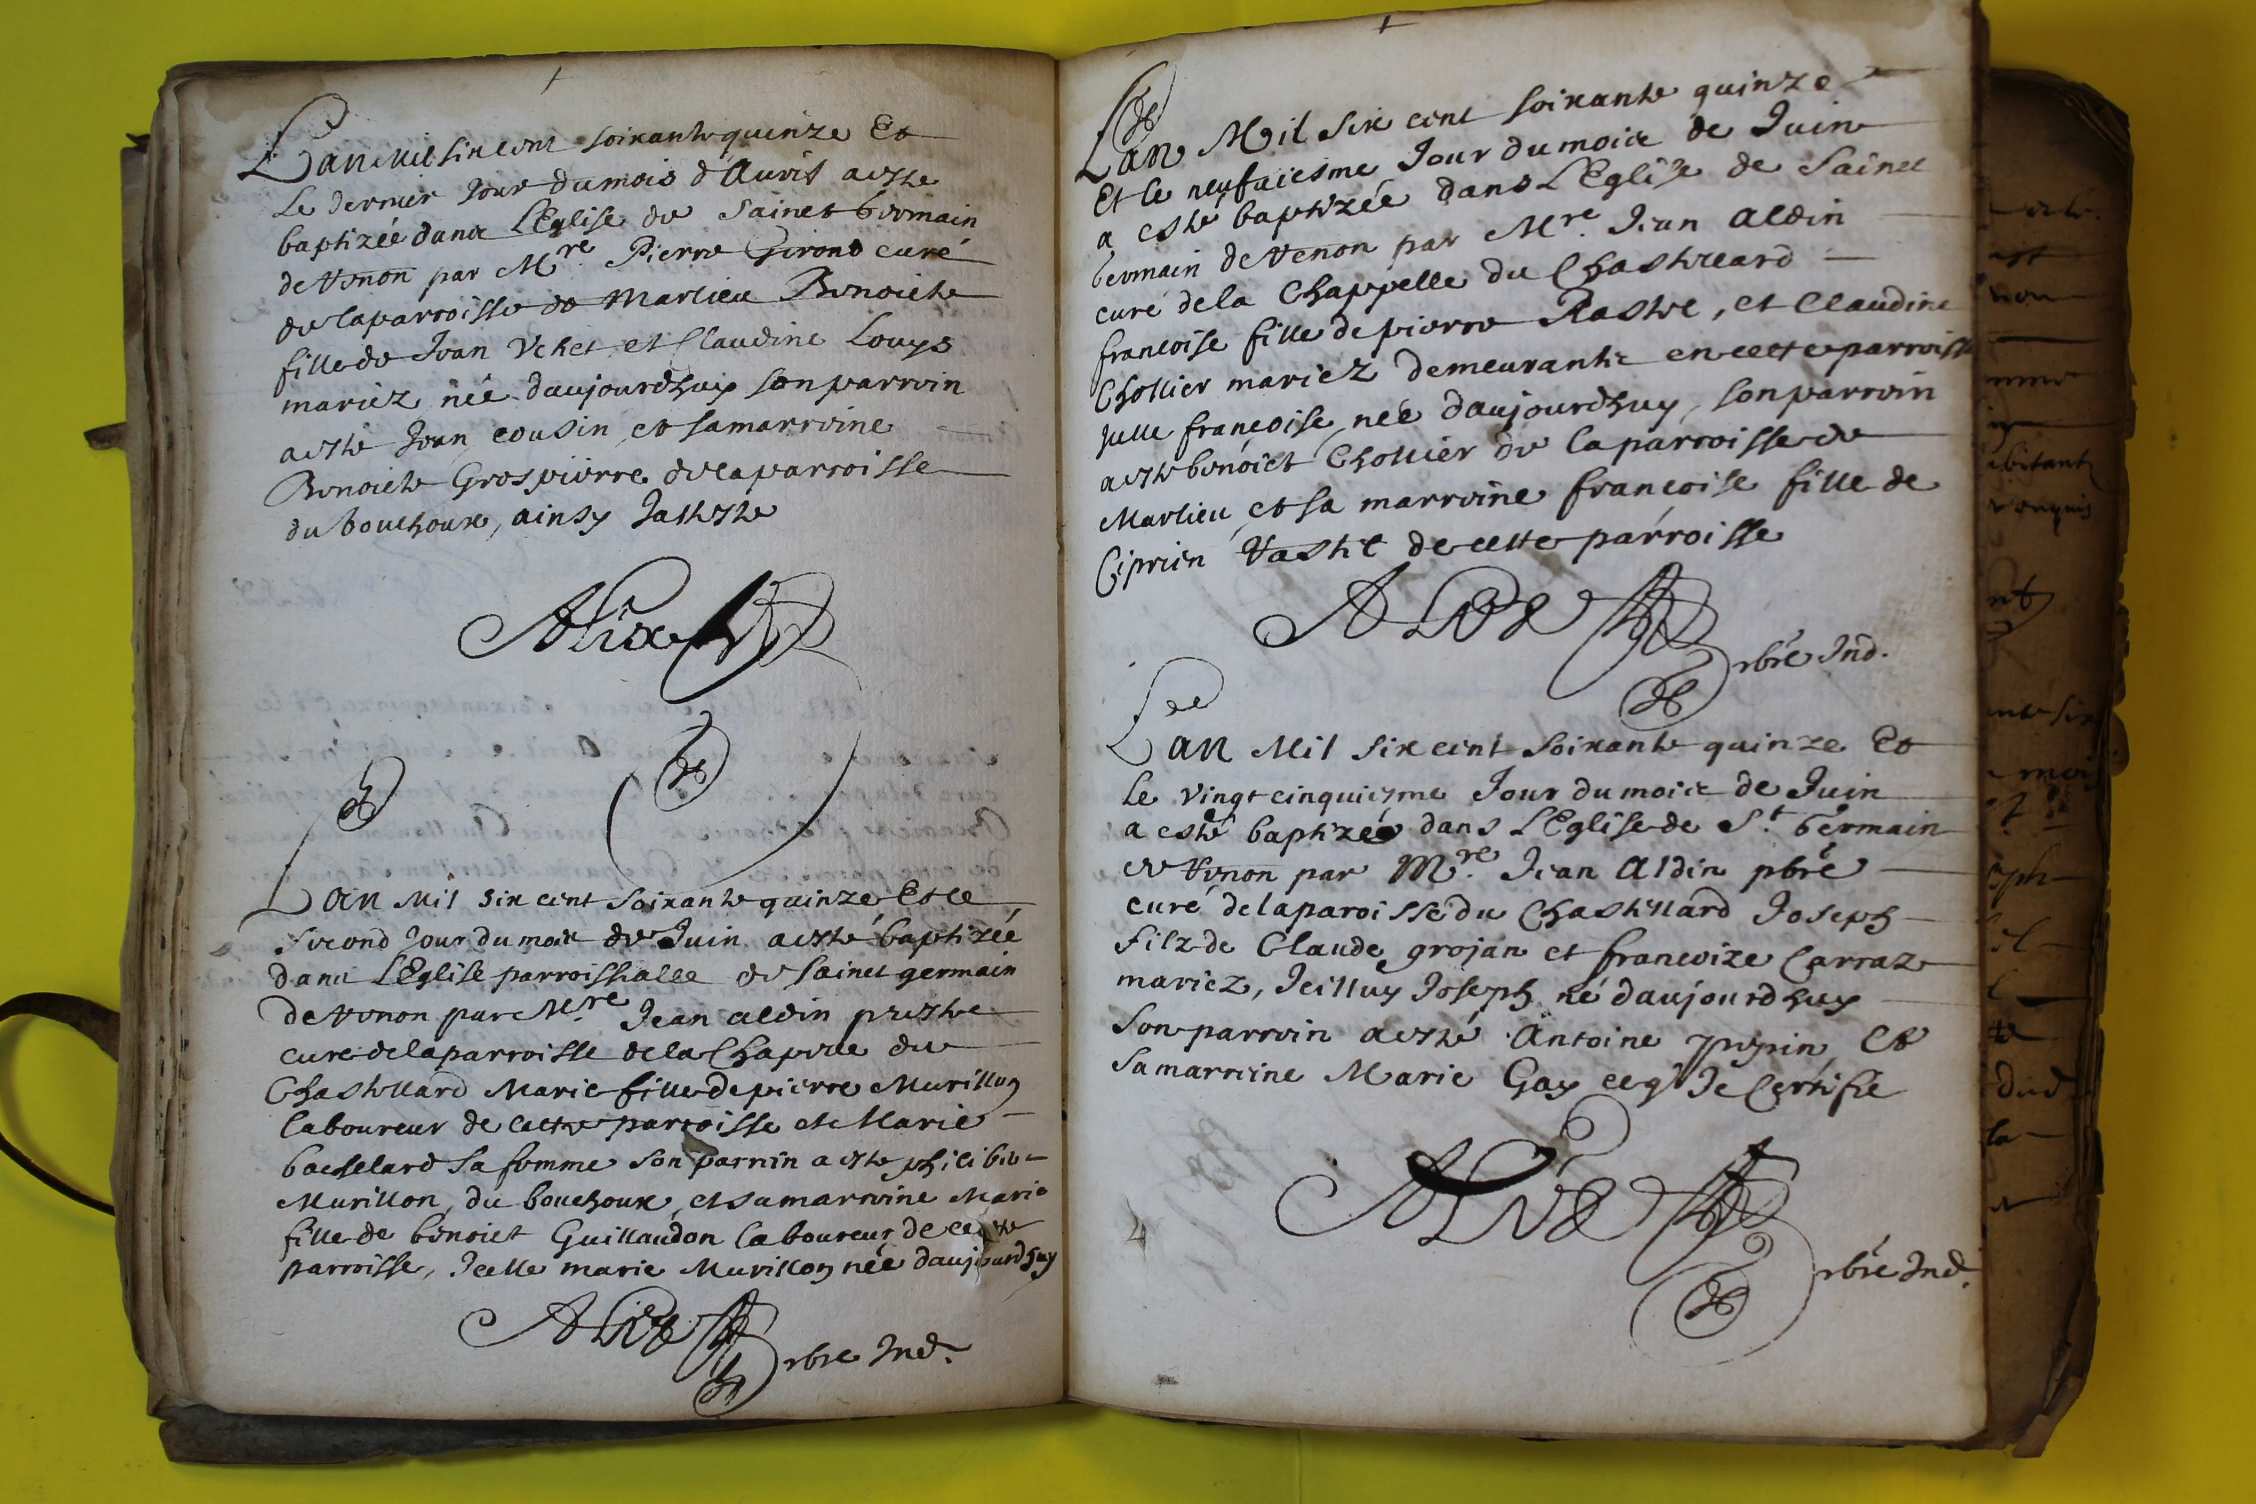 L'an mil six cent soixante quinze Et
Le dernier Jour du mois d'Auril a esté
baptizée dans L'Eglise de Sainct Germain
de Renon par Mre. Pierre Girond curé
de la parroisse de Marlieu Benoicte
fille de Jean Vehet et Claudine Louys
mariez née daujourdhuy son parroin
a esté Jean cousin et sa marroine
Benoicte Grospierre de la parroisse
du bouchoux, ainsy J'atteste
Alix
L'an Mil six cent soixante quinze Et le
Second Jour du mois de Juin a esté baptizée
dans L'Eglise parroissialle de Sainct germain
de Renon par Mre. Jean aldin prestre
curé de la parroisse de la Chapelle du
Chastellard Marie fille de pierre Murillon
laboureur de cette parroisse et Marie
bachelard sa femme son parrin a esté philibert
Murillon, du bouchoux, et sa marroine Marie
fille de benoict Guillaudon laboureur de cette
parroisse, Icelle marie Murillon née daujourdhuy
Alix
pbre Ind.
L'an Mil six cent soixante quinze
Et le neufuiesme Jour du mois de Juin
a esté baptizée dans L'Eglise de Sainct
Germain de Renon par Mre. Jean Aldin
curé de la Chappelle du Chastellard
francoise fille de pierre Rastel, et Claudine
Chollier mariez demeurants en cette parroisse
Jcelle françoise née daujourdhuy, son parroin
a esté benoict Chollier de la parroisse de
Marlieu et sa marroine françoise fille de
Ciprien Vastel de cette parroisse
pbre Ind.
L'an Mil six cent soixante quinze Et
le vingt cinquiesme Jour du mois de Juin
a esté baptizée dans L'Eglise de St. Germain
de Renon par Mre. Jean Aldin pbre
curé de la paroisse du Chastellard Joseph
filz de Claude grojan et francoize Carraz
mariez, Jcelluy Joseph né daujourdhuy
Son parroin a esté Antoine pepin Et
Sa marroine Marie Gay ce q' Je Certifie
pbre Ind.